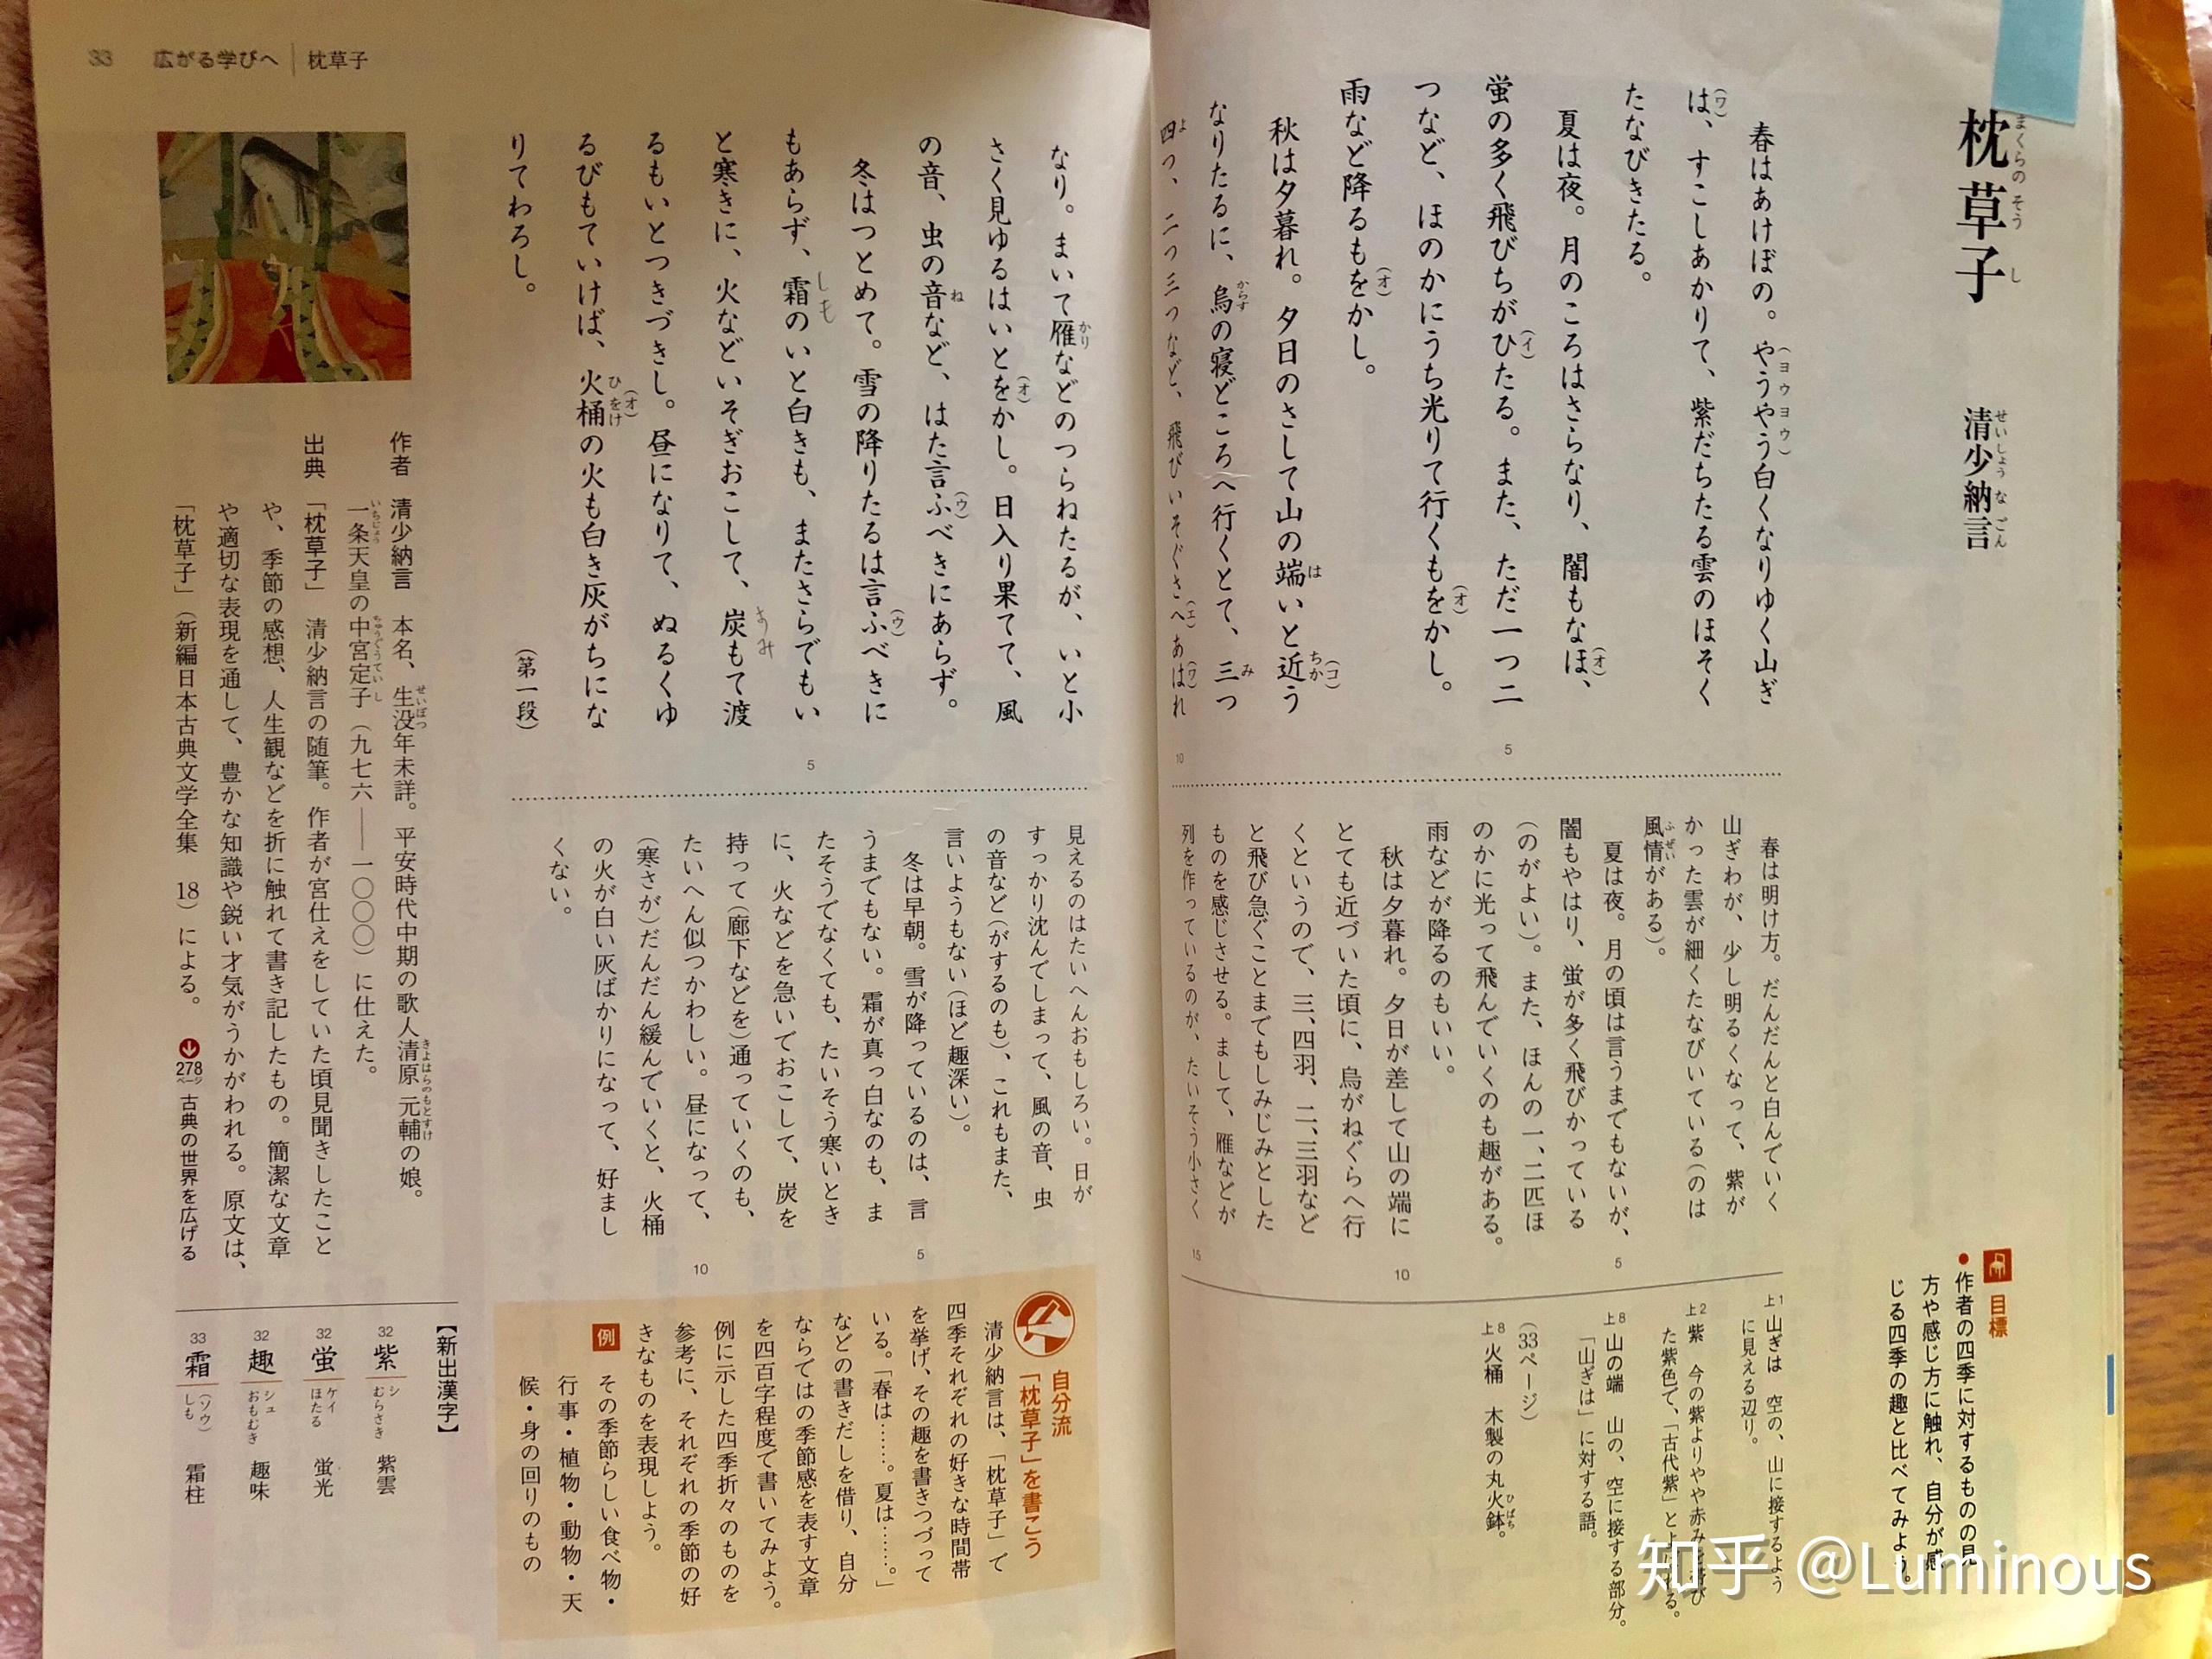 枕草子
まくらのそうし
清少納言
せいしょうなごん
目標
●作者の四季に対するものの見
方や感じ方に触れ、自分が感
じる四季の趣と比べてみよう。
春はあけぼの。やうやう白くなりゆく山ぎ
(ヨウヨウ)
は、すこしあかりて、紫だちたる雲のほそく
(ワ)
たなびきたる。
夏は夜。月のころはさらなり、闇もなほ、
(オ)
蛍の多く飛びちがひたる。また、ただ一つ二
(イ)
つなど、ほのかにうち光りて行くもをかし。
(オ)
雨など降るもをかし。
(オ)
秋は夕暮れ。夕日のさして山の端いと近う
は
ちか(コ)
なりたるに、烏の寝どころへ行くとて、三つ
からす
み
四つ、二つ三つなど、飛びいそぐさへあはれ
よ
(エ)
(ワ)
5
10
春は明け方。だんだんと白んでいく
山ぎわが、少し明るくなって、紫が
かった雲が細くたなびいている(のは
風情がある)。
ふぜい
夏は夜。月の頃は言うまでもないが、
闇もやはり、蛍が多く飛びかっている
(のがよい)。また、ほんの一、二匹ほ
のかに光って飛んでいくのも趣がある。
雨などが降るのもいい。
秋は夕暮れ。夕日が差して山の端に
とても近づいた頃に、烏がねぐらへ行
くというので、三、四羽、二、三羽など
と飛び急ぐことまでもしみじみとした
ものを感じさせる。まして、雁などが
列を作っているのが、たいそう小さく
5
10
15
上1 山ぎは 空の、山に接するよう
に見える辺り。
上2 紫 今の紫よりやや赤み
た紫色で、「古代紫」と
上8 山の端 山の、空に接する部分。
「山ぎは」に対する語。
(33ページ)
上8 火桶 木製の丸火鉢。
ひばち
知乎 @Luminous
33 広がる学びへ | 枕草子
なり。まいて雁などのつらねたるが、いと小
かり
さく見ゆるはいとをかし。日入り果てて、風
(オ)
の音、虫の音など、はた言ふべきにあらず。
ね
(ウ)
冬はつとめて。雪の降りたるは言ふべきに
(ウ)
もあらず、霜のいと白きも、またさらでもい
しも
と寒きに、火などいそぎおこして、炭もて渡
すみ
るもいとつきづきし。昼になりて、ぬるくゆ
るびもていけば、火桶の火も白き灰がちにな
ひをけ
(オ)
りてわろし。
(第一段)
5
見えるのはたいへんおもしろい。日が
すっかり沈んでしまって、風の音、虫
の音など(がするのも)、これもまた、
言いようもない(ほど趣深い)。
冬は早朝。雪が降っているのは、言
うまでもない。霜が真っ白なのも、ま
たそうでなくても、たいそう寒いとき
に、火などを急いでおこして、炭を
持って(廊下などを)通っていくのも、
たいへん似つかわしい。昼になって、
(寒さが)だんだん緩んでいくと、火桶
の火が白い灰ばかりになって、好まし
くない。
5
10
自分流
「枕草子」を書こう
清少納言は、「枕草子」で
四季それぞれの好きな時間帯
を挙げ、その趣を書きつづって
いる。「春は……。夏は……。」
などの書きだしを借り、自分
ならではの季節感を表す文章
を四百字程度で書いてみよう。
例に示した四季折々のものを
参考に、それぞれの季節の好
きなものを表現しよう。
例 その季節らしい食べ物・
行事・植物・動物・天
候・身の回りのもの
作者 清少納言 本名、生没年未詳。平安時代中期の歌人清原元輔の娘。
せいぼつ
きよはらのもとすけ
一条天皇の中宮定子(九七六——一〇〇〇)に仕えた。
いちじょう
ちゅうぐうていし
出典 「枕草子」 清少納言の随筆。作者が宮仕えをしていた頃見聞きしたこと
や、季節の感想、人生観などを折に触れて書き記したもの。簡潔な文章
や適切な表現を通して、豊かな知識や鋭い才気がうかがわれる。原文は、
「枕草子」(新編日本古典文学全集 18)による。
278ページ 古典の世界を広げる
【新出漢字】
32 紫 シ むらさき 紫雲
32 蛍 ケイ ほたる 蛍光
32 趣 シュ おもむき 趣味
33 霜 (ソウ) しも 霜柱